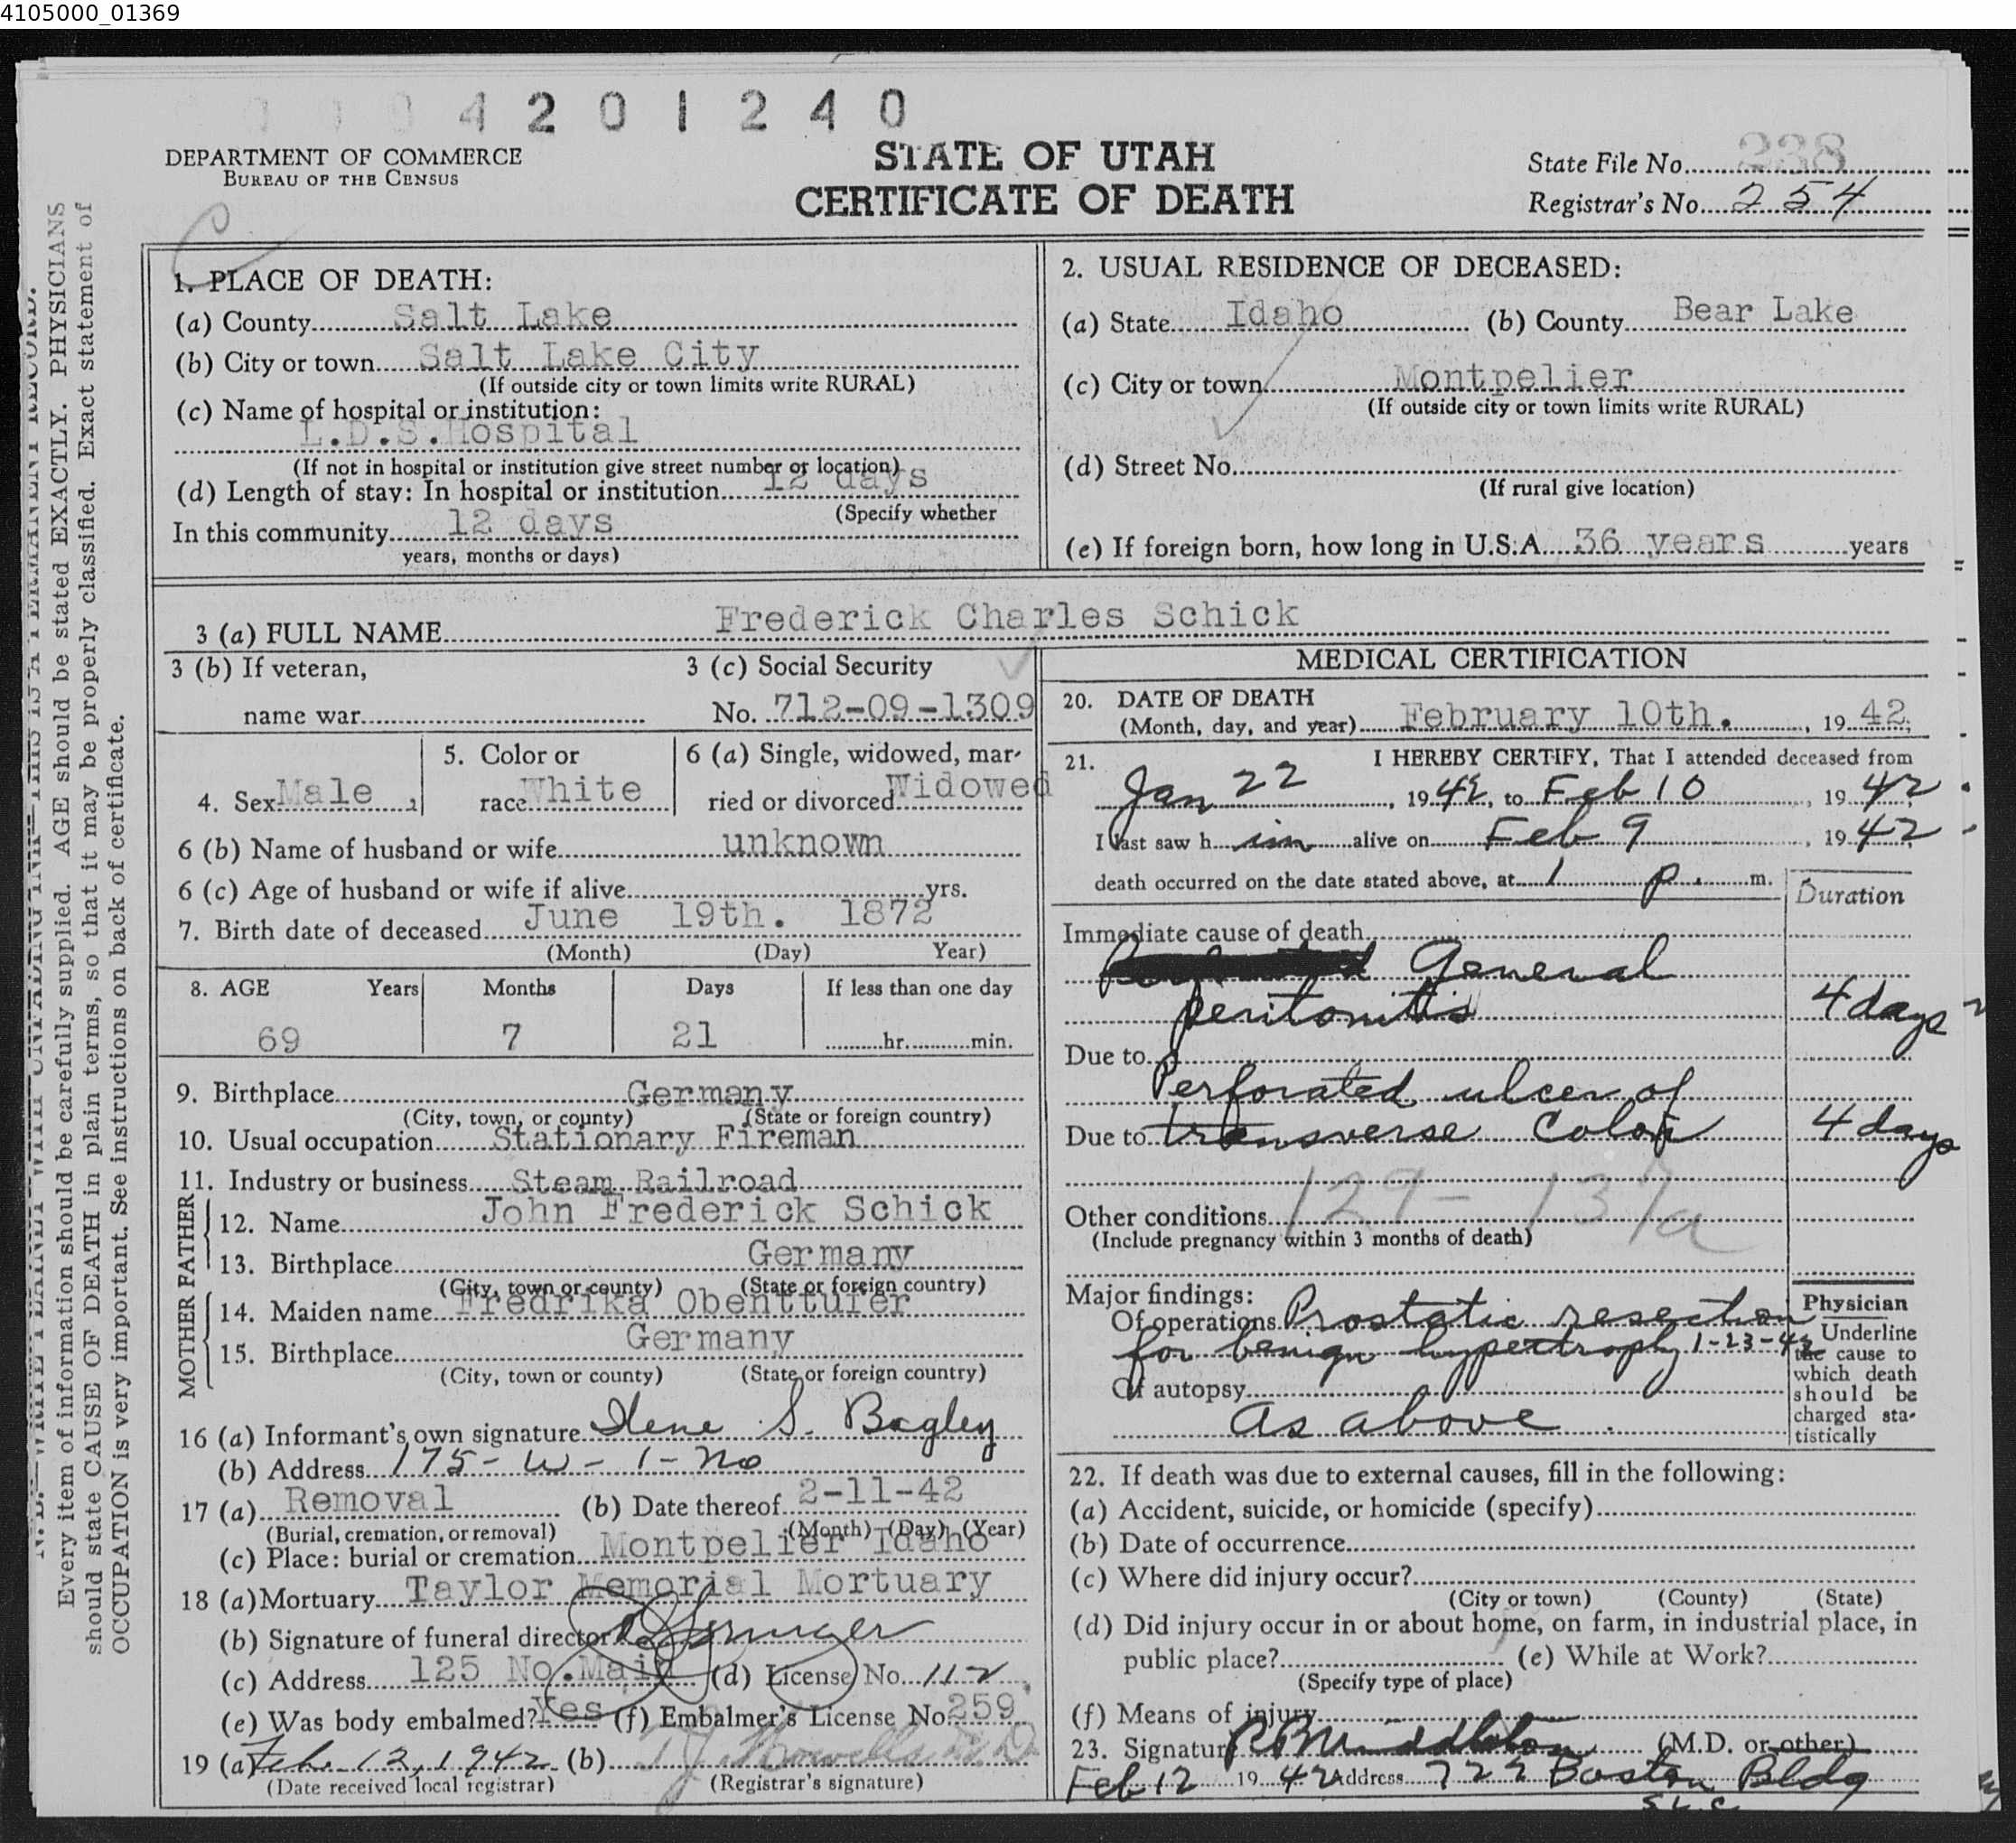 4105000_01369
0 0 0 4 2 0 1 2 4 0
DEPARTMENT OF COMMERCE
BUREAU OF THE CENSUS
STATE OF UTAH
CERTIFICATE OF DEATH
State File No. 238
Registrar's No. 254
Every item of information should be carefully supplied. AGE should be stated EXACTLY. PHYSICIANS
should state CAUSE OF DEATH in plain terms, so that it may be properly classified. Exact statement of
OCCUPATION is very important. See instructions on back of certificate.
1. PLACE OF DEATH:
(a) County Salt Lake
(b) City or town Salt Lake City
(If outside city or town limits write RURAL)
(c) Name of hospital or institution:
L.D.S. Hospital
(If not in hospital or institution give street number or location)
(d) Length of stay: In hospital or institution 12 days
(Specify whether
In this community 12 days
years, months or days)
2. USUAL RESIDENCE OF DECEASED:
(a) State Idaho (b) County Bear Lake
(c) City or town Montpelier
(If outside city or town limits write RURAL)
(d) Street No.
(If rural give location)
(e) If foreign born, how long in U.S.A. 36 years years
3 (a) FULL NAME Frederick Charles Schick
3 (b) If veteran,
name war
3 (c) Social Security
No. 712-09-1309
4. Sex Male
5. Color or
race White
6 (a) Single, widowed, mar-
ried or divorced Widowed
6 (b) Name of husband or wife unknown
6 (c) Age of husband or wife if alive yrs.
7. Birth date of deceased June 19th. 1872
(Month) (Day) Year)
8. AGE Years Months Days If less than one day
69 7 21 hr. min.
9. Birthplace Germany
(City, town, or county) (State or foreign country)
10. Usual occupation Stationary Fireman
11. Industry or business Steam Railroad
FATHER
12. Name John Frederick Schick
13. Birthplace Germany
(City, town or county) (State or foreign country)
MOTHER
14. Maiden name Fredrika Obenttufer
15. Birthplace Germany
(City, town or county) (State or foreign country)
16 (a) Informant's own signature Ilene S. Bagley
(b) Address 175 - W - 1 - No
17 (a) Removal (b) Date thereof 2-11-42
(Burial, cremation, or removal) (Month) (Day) (Year)
(c) Place: burial or cremation Montpelier Idaho
18 (a) Mortuary Taylor Memorial Mortuary
(b) Signature of funeral director
(c) Address 125 No. Main (d) License No. 112
(e) Was body embalmed? Yes (f) Embalmer's License No. 259
19 (a) Feb. 12, 1942 (b)
(Date received local registrar) (Registrar's signature)
MEDICAL CERTIFICATION
20. DATE OF DEATH
(Month, day, and year) February 10th. , 19 42
21. I HEREBY CERTIFY, That I attended deceased from
Jan 22, 1942, to Feb 10, 19 42
I last saw h im alive on Feb 9, 19 42
death occurred on the date stated above, at 1 p. m.
Duration
Immediate cause of death
General
peritonitis 4 days
Due to
Perforated ulcer of
Due to transverse Colon 4 days
129 - 137a
Other conditions
(Include pregnancy within 3 months of death)
Major findings:
Of operations Prostatic resection
for benign hypertrophy 1-23-42
Of autopsy
as above.
Physician
Underline
the cause to
which death
should be
charged sta-
tistically
22. If death was due to external causes, fill in the following:
(a) Accident, suicide, or homicide (specify)
(b) Date of occurrence
(c) Where did injury occur?
(City or town) (County) (State)
(d) Did injury occur in or about home, on farm, in industrial place, in
public place? (e) While at Work?
(Specify type of place)
(f) Means of injury
23. Signature R P Middleton (M.D. or other)
Feb 12 19 42 Address 722 Boston Bldg
S.L.C.